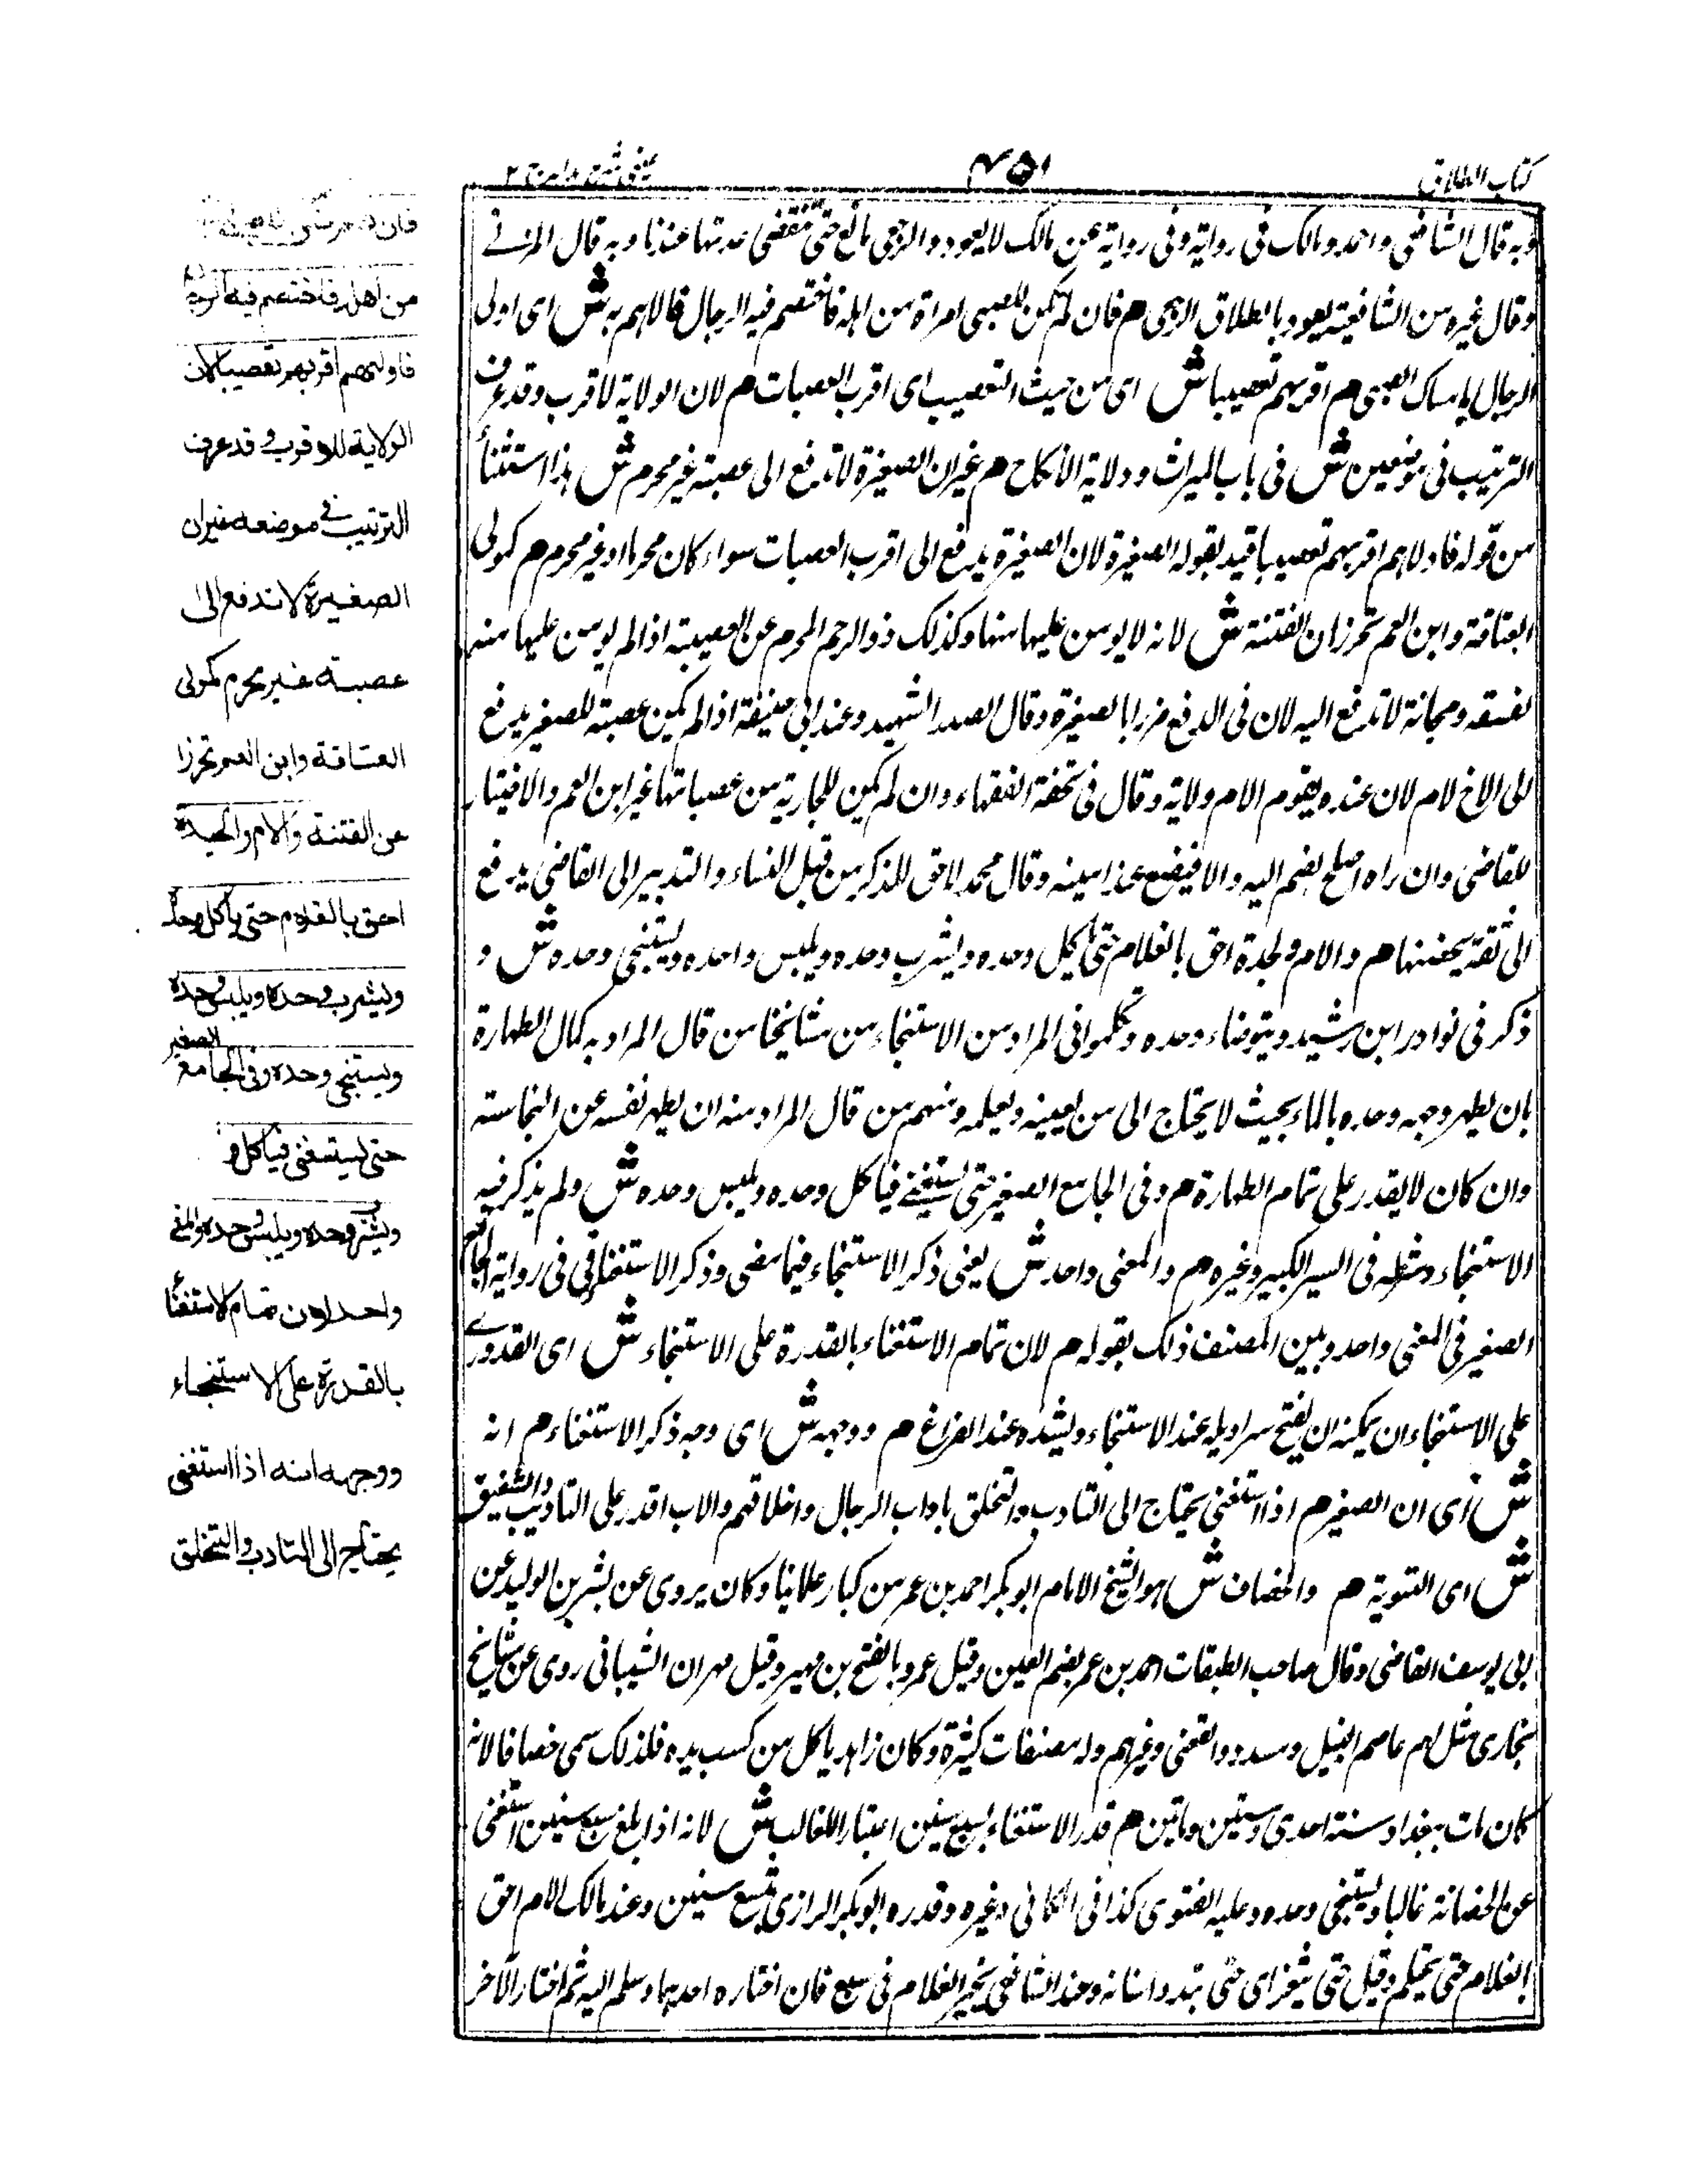 كتاب الطلاق
٤٥١
عينى شرح هداية ج ٢
وبه قال الشافعى واحمد ومالك فى رواية وفى رواية عن مالك لا يعود والرجعى مانع حتى تنقضى عدتها عندنا وبه قال المزنى
وقال غيره من الشافعية يعود بالطلاق الرجعى م فان لم تكن للصبى امراة من اهله فاختصم فيه الرجال فاولاهم به ش اى اولى
الرجال بامساك الصبى م اقربهم تعصيبا ش اى من حيث التعصيب اى اقرب العصبات م لان الولاية للاقرب وقد عرف
الترتيب فى موضعين ش فى باب الميراث وولاية الانكاح م غير ان الصغيرة لا تدفع الى عصبته غير محرم ش هذا استثناء
من قوله فاولاهم اقربهم تعصيبا قيد بقوله الصغيرة لان الصغيرة يدفع الى اقرب العصبات سواء كان محرما او غير محرم م كمولى
العتاقة وابن العم تحرزا عن الفتنة ش لانه لا يومن عليها منها وكذلك ذو الرحم المحرم عن العصبة اذا لم يومن عليها منه
لفسقه ومجانة لا تدفع اليه لان فى الدفع ضررا بالصغيرة وقال الصدر الشهيد وعند ابى حنيفة اذا لم يكن عصبة للصغير يدفع
الى الاخ لام لان عنده يقوم الام ولاية وقال فى تحفة الفقهاء وان لم يكن للجارية من عصباتها غير ابن العم والاختيار
للقاضى وان راه اصلح يضم اليه والا فيضع عند امينه وقال محمد لا حق للذكر من قبل النساء والتدبير الى القاضى يدفع
الى ثقة يحضنها م والام والجدة احق بالغلام حتى ياكل وحده ويشرب وحده ويلبس واحده ويستنجى وحده ش و
ذكر فى نوادر ابن رشيد ويتوضاء وحده وتكلموا فى المراد من الاستنجاء من مشايخنا من قال المراد به كمال الطهارة
بان يطهر وجهه وحده بالماء بحيث لا يحتاج الى من يعينه ويعلمه ومنهم من قال المراد منه ان يطهر نفسه عن النجاسته
وان كان لا يقدر على تمام الطهارة م وفى الجامع الصغير حتى يستغنى فياكل وحده ويلبس وحده ش ولم يذكر فيه
الاستنجاء ومثله فى السير الكبير وغيره م والمعنى واحد ش يعنى ذكر الاستنجاء فيما مضى وذكر الاستغناء فى رواية الجامع
الصغير فى المعنى واحد وبين المصنف ذلك بقوله م لان تمام الاستغناء بالقدرة على الاستنجاء ش اى القدورى
على الاستنجاء ان يمكنه ان يفتح سراويله عند الاستنجاء ويشده عند الفراغ م ووجهه ش اى وجه ذكر الاستغناء م انه
ش اى ان الصغير م اذا استغنى يحتاج الى التادب والتخلق باداب الرجال واخلاقهم والاب اقدر على التاديب والتثقيف
ش اى التسوية م والخصاف ش هو الشيخ الامام ابو بكر احمد بن عمر من كبار علمائنا وكان يروى عن بشر بن الوليد عن
ابى يوسف القاضى وقال صاحب الطبقات احمد بن عمر بضم العين وقيل عمرو بالفتح بن مهير وقيل مهران الشيبانى روى عن مشايخ
بخارى مثل ابى عاصم النبيل ومسدد والقعنبى وغيرهم وله مصنفات كثيرة وكان زاهد ياكل من كسب يده فلذلك سمى خصافا لانه
كان مات ببغداد سنة احدى وستين وماتين م قدر الاستغناء بسبع سنين اعتبارا للغالب ش لانه اذا بلغ سبع سنين استغنى
عن الحضانة غالبا ويستنجى وحده وعليه الفتوى كذا فى الكافى وغيره وقدره ابو بكر الرازى بتسع سنين وعند مالك الام احق
بالغلام حتى يحتلم وقيل حتى يثغر اى حتى تبدو اسنانه وعند الشافعى يخير الغلام فى سبع فان اختاره احدهما وسلم اليه ثم اختار الآخر
من اهله فاختصم فيه الرجال
فاولهم اقربهم تعصيبا لان
الولاية للاقرب وقد عرف
الترتيب فى موضعه غير ان
الصغيرة لا تدفع الى
عصبته غير محرم كمولى
العتاقة وابن العم تحرزا
عن الفتنة والام والجدة
احق بالغلام حتى ياكل وحده
ويشرب وحده ويلبس وحده
ويستنجى وحده وفى الجامع الصغير
حتى يستغنى فياكل و
ويشرب وحده ويلبس وحده والمعنى
واحد لان تمام الاستغناء
بالقدرة على الاستنجاء
ووجهه انه اذا استغنى
يحتاج الى التادب والتخلق